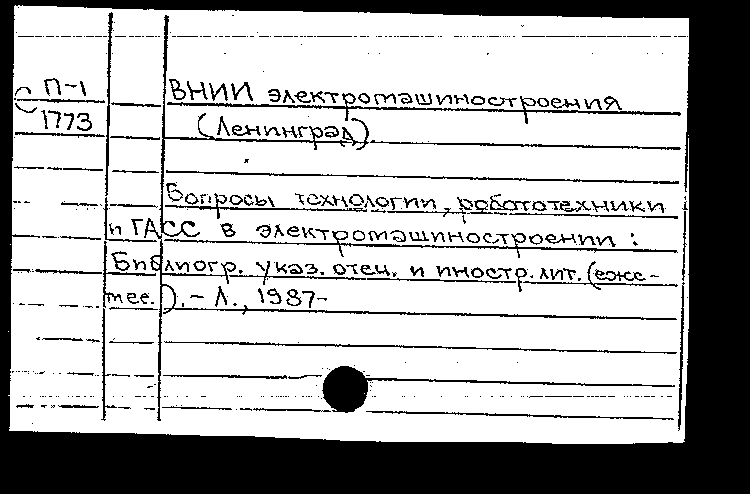 С П-1
1773
ВНИИ электромашиностроения
(Ленинград).
Вопросы технологии, робототехники
и ГАСС в электромашиностроении:
Библиогр. указ. отеч. и иностр. лит. (еже-
мес.). - Л., 1987-